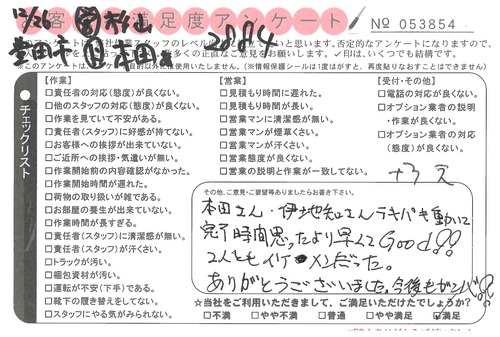 12/26
お客様満足度アンケート No 053854
豊田市 本田 2884
※このアンケートは
(※情報保護シールは1度はがすと、再度貼りなおすことはできません)
チェックリスト
【作業】
□責任者の対応(態度)が良くない。
□他のスタッフの対応(態度)が良くない。
□作業を見ていて不安がある。
□責任者(スタッフ)に好感が持てない。
□お客様への挨拶が出来ていない。
□ご近所への挨拶・気遣いが無い。
□作業開始前の内容確認がなかった。
□作業開始時間が遅れた。
□荷物の取り扱いが雑である。
□お部屋の養生が出来ていない。
□作業時間が長すぎる。
□責任者(スタッフ)に清潔感が無い。
□責任者(スタッフ)が汗くさい。
□トラックが汚い。
□梱包資材が汚い。
□運転が不安(下手)である。
□靴下の履き替えをしてない。
□スタッフにやる気がみられない。
【営業】
□見積もり時間に遅れた。
□見積もり時間が長い。
□営業マンに清潔感が無い。
□営業マンが煙草くさい。
□営業マンが汗くさい。
□営業態度が良くない。
□営業の説明と作業が一致してない。
【受付・その他】
□電話の対応が良くない。
□オプション業者の説明
・作業が良くない。
□オプション業者の対応
(態度)が良くない。
その他、ご意見・ご要望等ありましたらお書き下さい。
本田さん・伊地知さんテキパキ動いて
完了時間思ったより早くてGood!!
2人ともイケメンだった。
ありがとうございました。今後もガンバ!!
☆当社をご利用いただきまして、ご満足いただけたでしょうか?
□不満 □やや不満 □普通 □やや満足 ☑満足